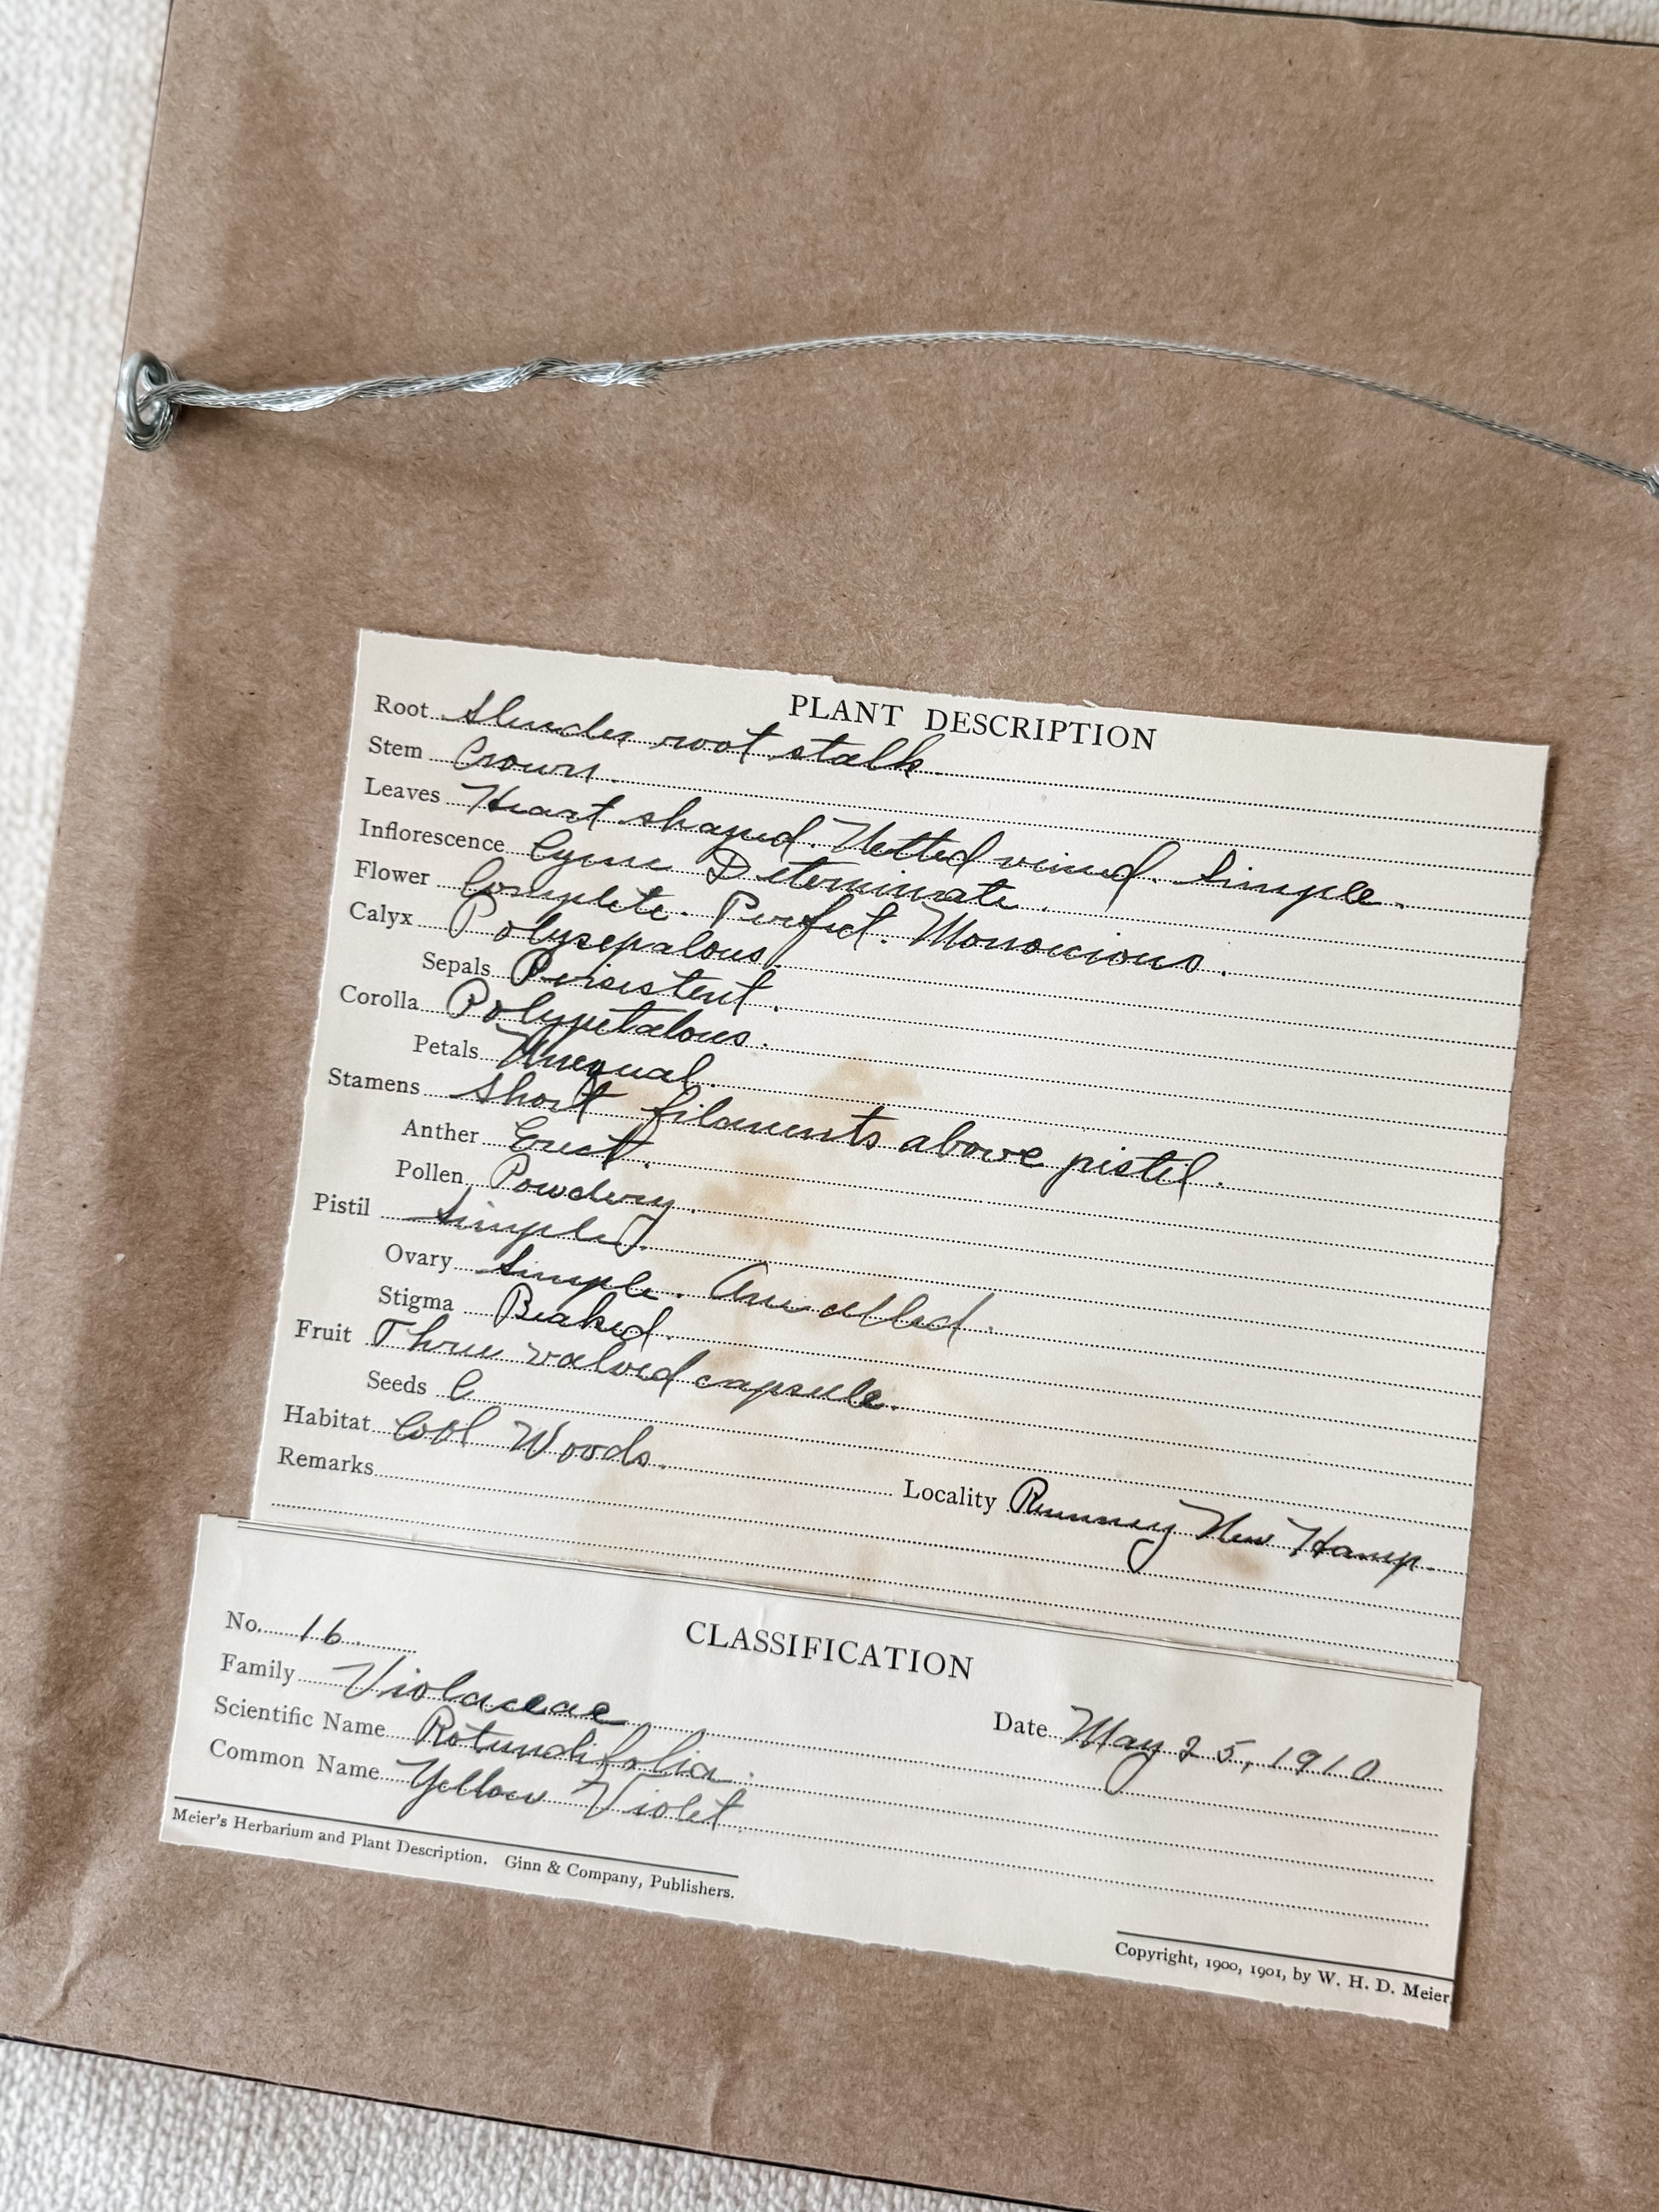 PLANT DESCRIPTION
Root Slender root stalk.
Stem Crown.
Leaves Heart shaped. Netted veined. Simple.
Inflorescence Cyme Determinate.
Flower Complete. Perfect. Monoecious.
Calyx Polysepalous.
Sepals Persistent.
Corolla Polypetalous.
Petals Unequal.
Stamens Short filaments above pistil.
Anther Erect.
Pollen Powdery.
Pistil Simple.
Ovary Simple. celled.
Stigma Beaked.
Fruit Three valved capsule.
Seeds
Habitat Cool Woods. Locality Rumney New Hamp.
Remarks
CLASSIFICATION
No. 16. Date May 25, 1910
Family Violaceae
Scientific Name Rotundifolia.
Common Name Yellow Violet
Meier's Herbarium and Plant Description. Ginn & Company, Publishers.
Copyright, 1900, 1901, by W. H. D. Meier.